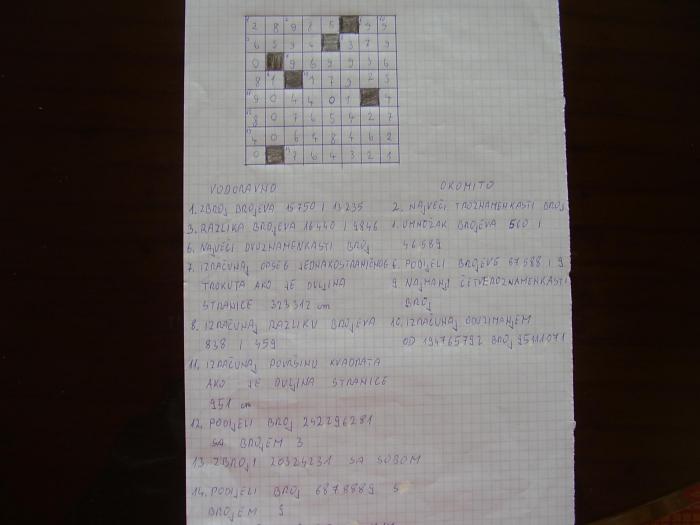 2 8 9 8 5 9 9
6 5 9 4 3 7 9
0 9 6 9 9 3 6
8 1 1 7 9 2 5
9 0 4 4 0 1 4
8 0 7 6 5 4 2 7
4 0 6 4 8 4 6 2
0 7 6 4 3 2 1
VODORAVNO
1. ZBROJ BROJEVA 15750 I 13235
3. RAZLIKA BROJEVA 16440 I 9846
6. NAJVEĆI DVOZNAMENKASTI BROJ
7. IZRAČUNAJ OPSEG JEDNAKOSTRANIČNOG
TROKUTA AKO JE DULJINA
STRANICE 323312 cm
8. IZRAČUNAJ RAZLIKU BROJEVA
838 I 459
11. IZRAČUNAJ POVRŠINU KVADRATA
AKO JE DULJINA STRANICE
951 cm
12. PODIJELI BROJ 242296281
SA BROJEM 3
13. ZBROJI 20324231 SA SOBOM
14. PODIJELI BROJ 6878889 S
BROJEM 9
OKOMITO
2. NAJVEĆI TROZNAMENKASTI BROJ
1. UMNOŽAK BROJEVA 560 I
46589
6. PODIJELI BROJEVE 67588 I 9
9. NAJMANJI ČETVEROZNAMENKASTI
BROJ
10. IZRAČUNAJ ODUZIMANJEM
OD 194765792 BROJ 95111071